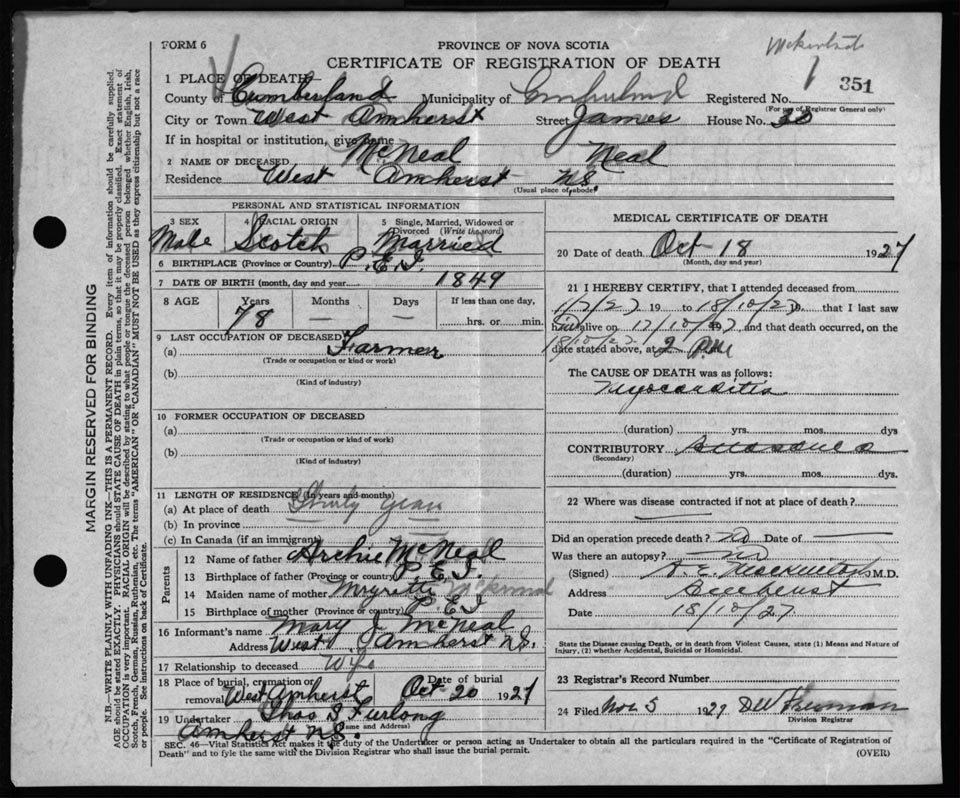 FORM 6
PROVINCE OF NOVA SCOTIA
CERTIFICATE OF REGISTRATION OF DEATH
351
1 PLACE OF DEATH
County of Cumberland Municipality of Cumberland Registered No.
(For use of Registrar General only)
City or Town West Amherst Street James House No. 30
If in hospital or institution, give name
2 NAME OF DECEASED McNeal Neal
Residence West Amherst N.S.
(Usual place of abode)
PERSONAL AND STATISTICAL INFORMATION
3 SEX 4 RACIAL ORIGIN 5 Single, Married, Widowed or Divorced (Write the word)
Male Scotch Married
6 BIRTHPLACE (Province or Country) P.E.I.
7 DATE OF BIRTH (month, day and year) 1849
8 AGE Years Months Days If less than one day,
78 — — hrs. or min.
9 LAST OCCUPATION OF DECEASED
(a) Farmer
(Trade or occupation or kind of work)
(b)
(Kind of industry)
10 FORMER OCCUPATION OF DECEASED
(a)
(Trade or occupation or kind of work)
(b)
(Kind of industry)
11 LENGTH OF RESIDENCE (In years and months)
(a) At place of death Thirty Years
(b) In province
(c) In Canada (if an immigrant)
Parents
12 Name of father Archie McNeal
13 Birthplace of father (Province or country) P.E.I.
14 Maiden name of mother
15 Birthplace of mother (Province or country) P.E.I
16 Informant's name Mary J McNeal
Address West Amherst N.S.
17 Relationship to deceased Wife
18 Place of burial, cremation or removal West Amherst Date of burial Oct 20 1927
19 Undertaker Thos S Furlong
(Name and Address)
Amherst N.S.
MEDICAL CERTIFICATE OF DEATH
20 Date of death Oct 18 1927
(Month, day and year)
21 I HEREBY CERTIFY, that I attended deceased from
19 to 18/10/27, that I last saw
alive on 17/10/27, and that death occurred, on the
18/10/27
date stated above, at 2 P.M
The CAUSE OF DEATH was as follows:
Myocarditis
(duration) yrs. mos. dys
CONTRIBUTORY
(Secondary)
(duration) yrs. mos. dys.
22 Where was disease contracted if not at place of death?
Did an operation precede death? no Date of —
Was there an autopsy? no
(Signed) M.D.
Address Amherst
Date 18/10/27
State the Disease causing Death, or in death from Violent Causes, state (1) Means and Nature of
Injury, (2) whether Accidental, Suicidal or Homicidal.
23 Registrar's Record Number
24 Filed Nov 5 1927
Division Registrar
SEC. 46—Vital Statistics Act makes it the duty of the Undertaker or person acting as Undertaker to obtain all the particulars required in the "Certificate of Registration of
Death" and to fyle the same with the Division Registrar who shall issue the burial permit.
(OVER)
MARGIN RESERVED FOR BINDING
N.B.—WRITE PLAINLY WITH UNFADING INK—THIS IS A PERMANENT RECORD. Every item of information should be carefully supplied.
AGE should be stated EXACTLY. PHYSICIANS should STATE CAUSE OF DEATH in plain terms, so that it may be properly classified. Exact statement of
OCCUPATION is very important. RACIAL ORIGIN will be described by stating to what people or tongue the deceased person belonged whether English, Irish,
Scotch, French, German, Russian, Ruthenian, etc. The terms "AMERICAN" OR "CANADIAN" MUST NOT BE USED as they express citizenship but not a race
or people. See instructions on back of Certificate.